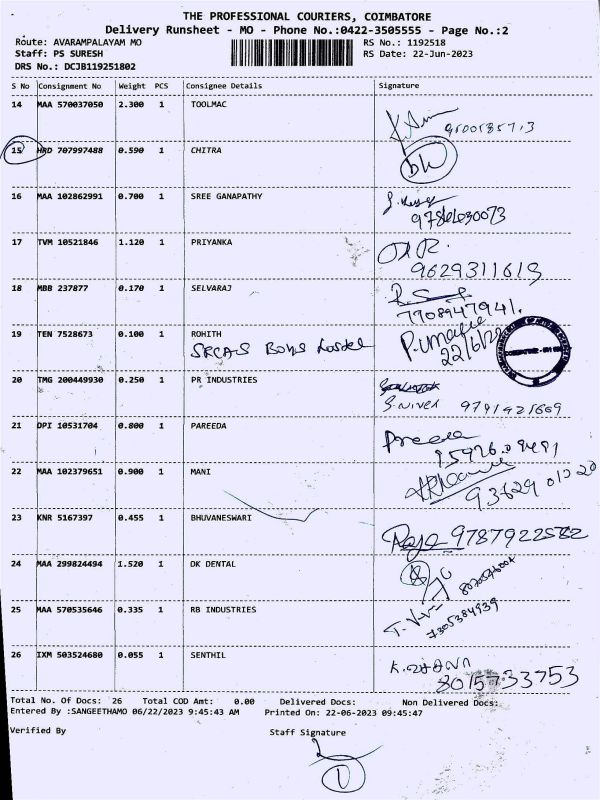 THE PROFESSIONAL COURIERS, COIMBATORE
Delivery Runsheet - MO - Phone No.:0422-3505555 - Page No.:2
Route: AVARAMPALAYAM MO RS No.: 1192518
Staff: PS SURESH RS Date: 22-Jun-2023
DRS No.: DCJB119251802
S No Consignment No Weight PCS Consignee Details Signature
14 MAA 570037050 2.300 1 TOOLMAC
15 HRD 707997488 0.590 1 CHITRA
16 MAA 102862991 0.700 1 SREE GANAPATHY
17 TVM 10521846 1.120 1 PRIYANKA
9629311613
18 MBB 237877 0.170 1 SELVARAJ
7708947941.
19 TEN 7528673 0.100 1 ROHITH
SRCAS Boys Hostel
P.Umafie
22/6/23
20 TMG 200449930 0.250 1 PR INDUSTRIES
21 DPI 10531704 0.800 1 PAREEDA
Preeda
22 MAA 102379651 0.900 1 MANI
23 KNR 5167397 0.455 1 BHUVANESWARI
Raja 9787922582
24 MAA 299824494 1.520 1 DK DENTAL
25 MAA 570535646 0.335 1 RB INDUSTRIES
7305384939
26 IXM 503524680 0.055 1 SENTHIL
8015733753
Total No. Of Docs: 26 Total COD Amt: 0.00 Delivered Docs: Non Delivered Docs:
Entered By :SANGEETHAMO 06/22/2023 9:45:43 AM Printed On: 22-06-2023 09:45:47
Verified By Staff Signature